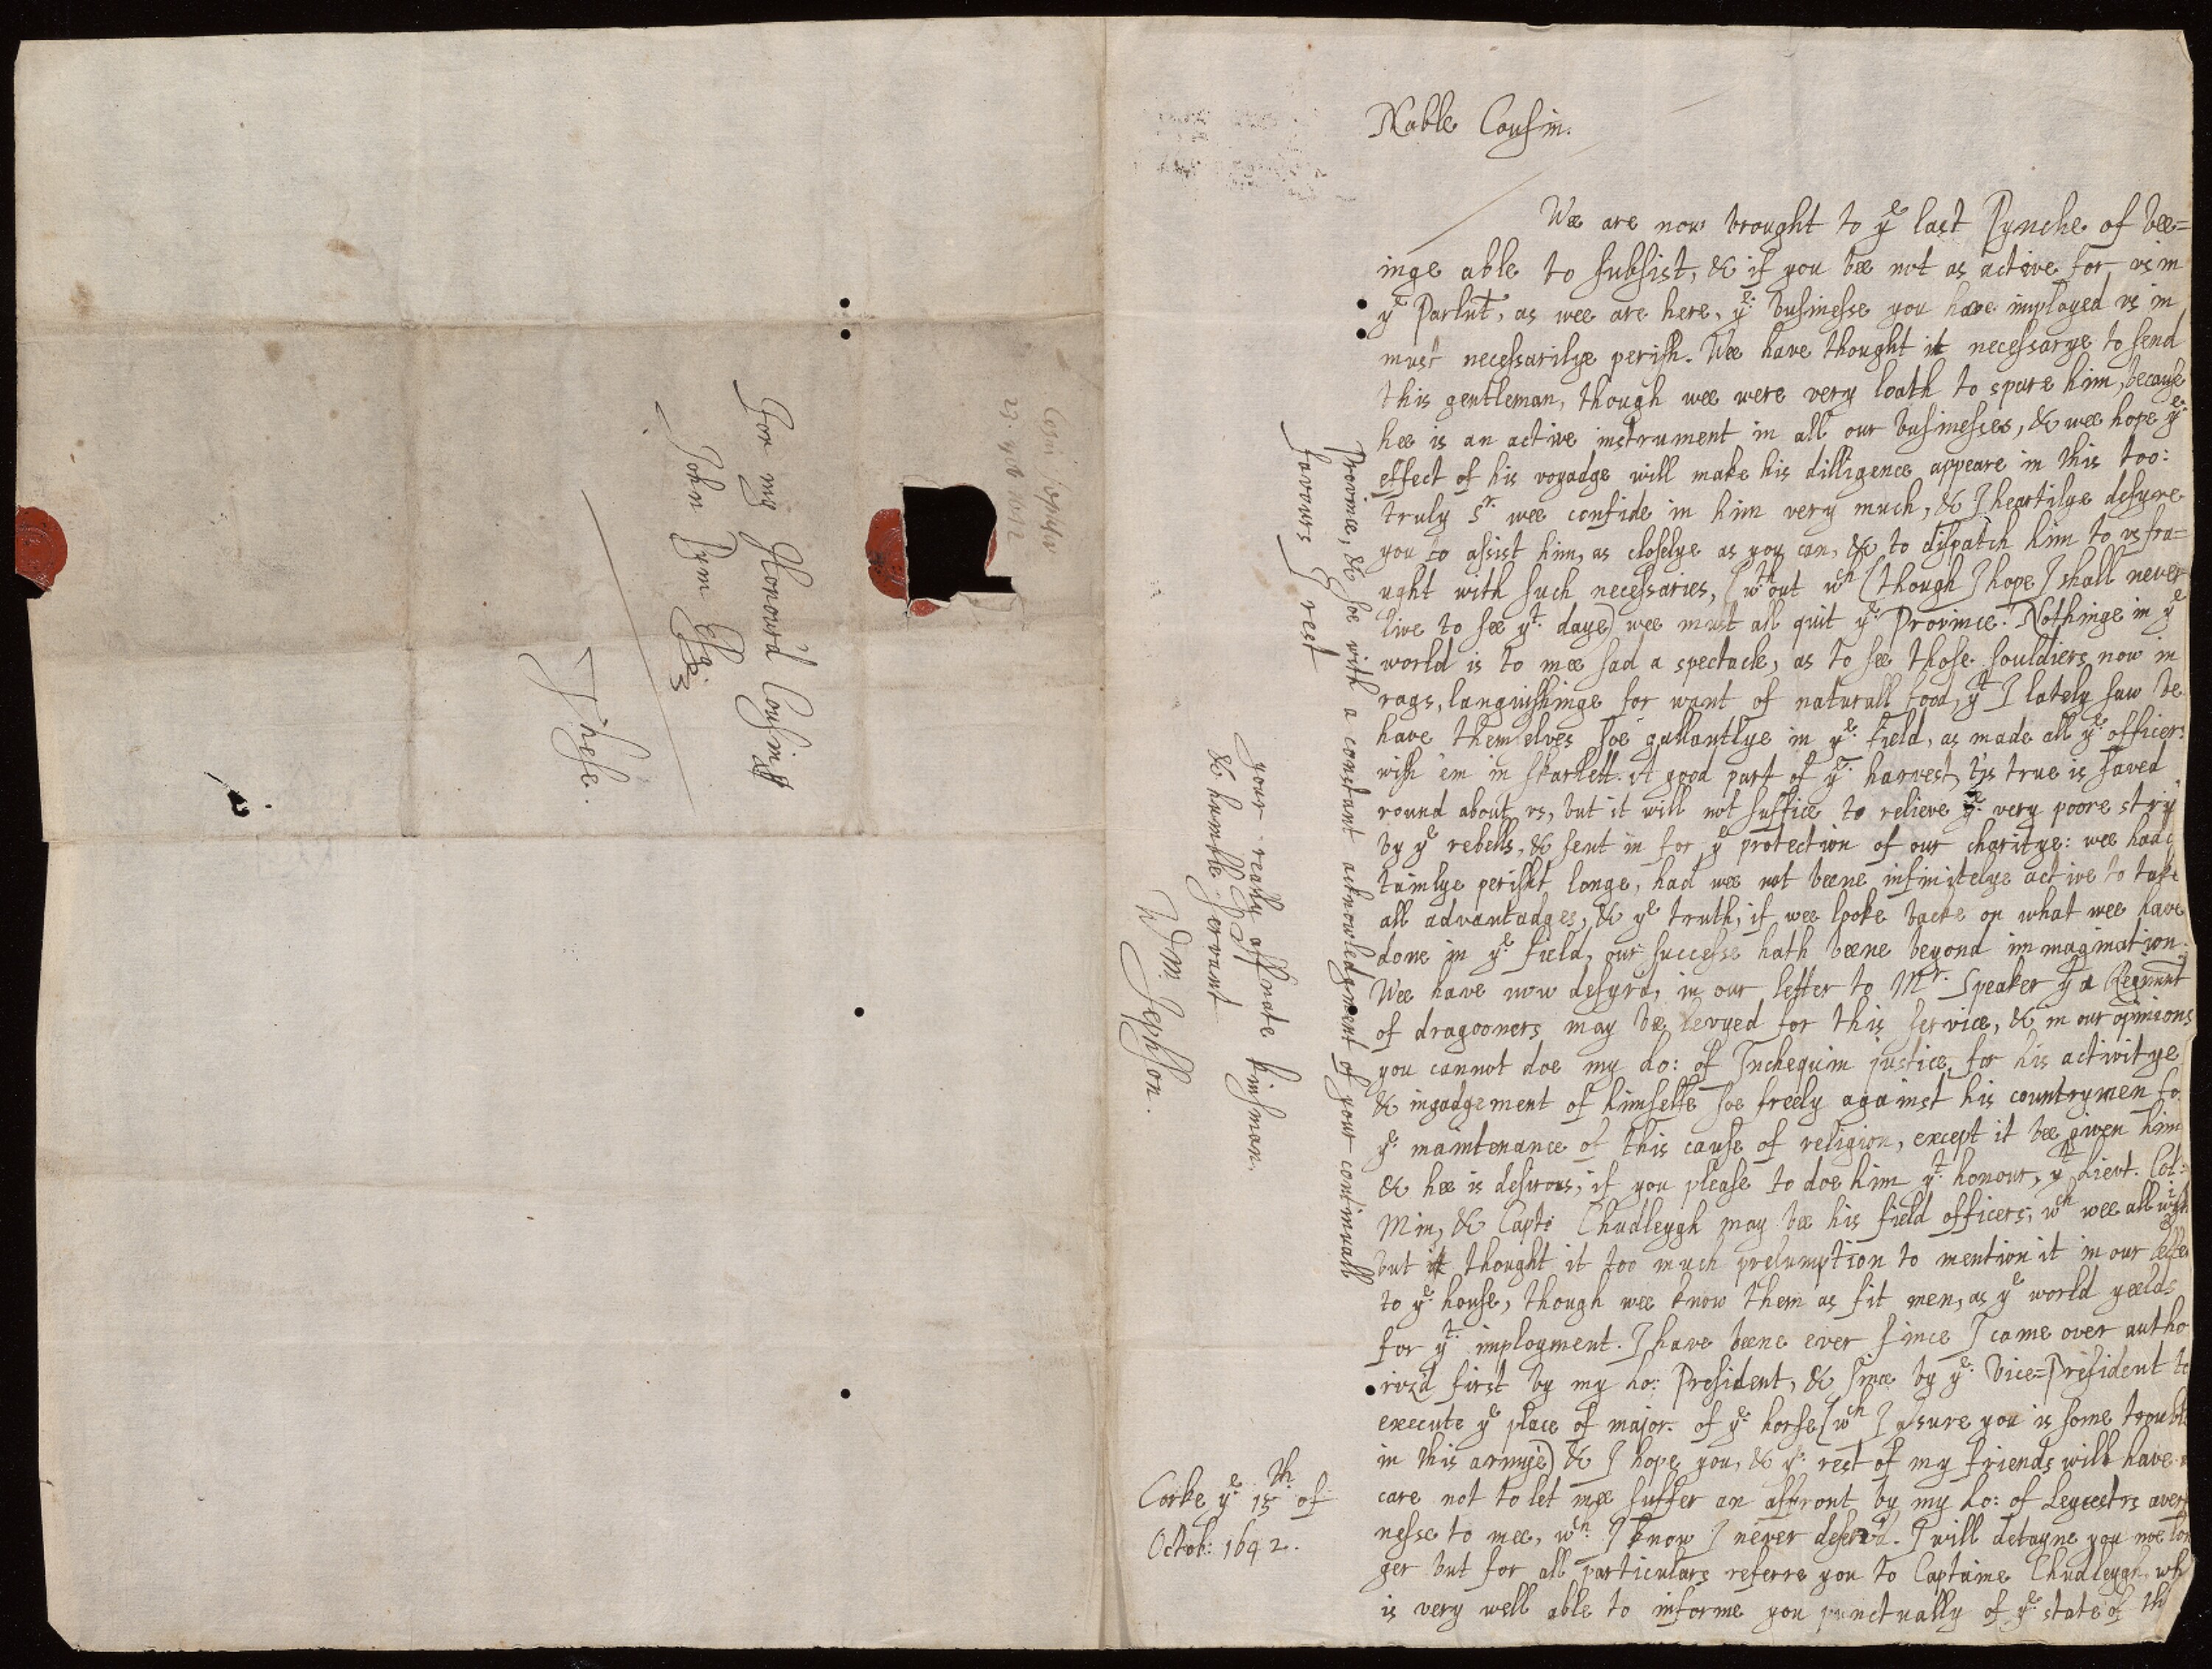 Noble Cousin.
Wee are now brought to ye last Pynche of bee=
inge able to subsist, & if you bee not as active for vs in
ye Parlnt, as wee are here, ye businesse you have imployed vs in
must necessarilye perish. Wee have thought it necessarye to send
this gentleman, though wee were very loath to spare him, because
hee is an active instrument in all our businesses, & wee hope ye
effect of his voyadge will make his dilligence appeare in this too:
truly Sr. wee confide in him very much, & I heartilye desyre
you to assist him, as closelye as you can, & to dispatch him to vs fra=
ught with such necessaries, (wthout wch (though I hope I shall never
live to see yt. daye) wee must all quit ye Province. Nothinge in ye
world is to mee sad a spectacle, as to see those souldiers now in
rags, languishinge for want of naturall food, yt I lately saw be
have themselves soe gallantlye in ye field, as made all ye officers
wish 'em in skarlett. A good part of ye harvest, tis true is saved
round about vs, but it will not suffice to relieve ye very poore stry
by ye rebells, & sent in for ye protection of our charitye: wee had c
tainlye perisht longe, had wee not beene infinitelye active to take
all advantadges, & ye truth, if wee looke backe on what wee have
done in ye field, our successe hath beene beyond immagination.
Wee have now desyrd, in our letter to Mr. Speaker yt a Regimnt
of dragooners may bee levyed for this service, & in our opinions
you cannot doe my Lo: of Inchequin justice, for his activitye
& ingadgement of himselfe soe freely against his countrymen fo
ye maintenance of this cause of religion, except it bee given him
& hee is desirous, if you please to doe him yt. honour, yt Lievt. Col:
Min, & Capt: Chudleygh may bee his field officers, wch wee all wish
but it thought it too much presumption to mention it in our letter
to ye house, though wee know them as fit men, as ye world yeelds
for yt. imployment. I have beene ever since I came over autho
rizd first by my Lo: President, & since by ye Vice=President to
execute ye place of major of ye horse (wch I asure you is some trouble
in this armye) & I hope you, & ye rest of my friends will have a
care not to let mee suffer an affront by my Lo: of Leycestrs avers
nesse to mee, wch. I know I never deserv'd. I will detayne you noe lon
ger but for all particulars referre you to Captaine Chudleygh, wh
is very well able to informe you punctually of ye state of th
Province, & soe with a constant acknowledgment of your continuall
favours I rest
your really affnate kinsman,
& humble servant
Wm: Jephson.
Corke ye 15th of
Octob: 1642.
For my Honourd Cousin
John Pym Esq
These.